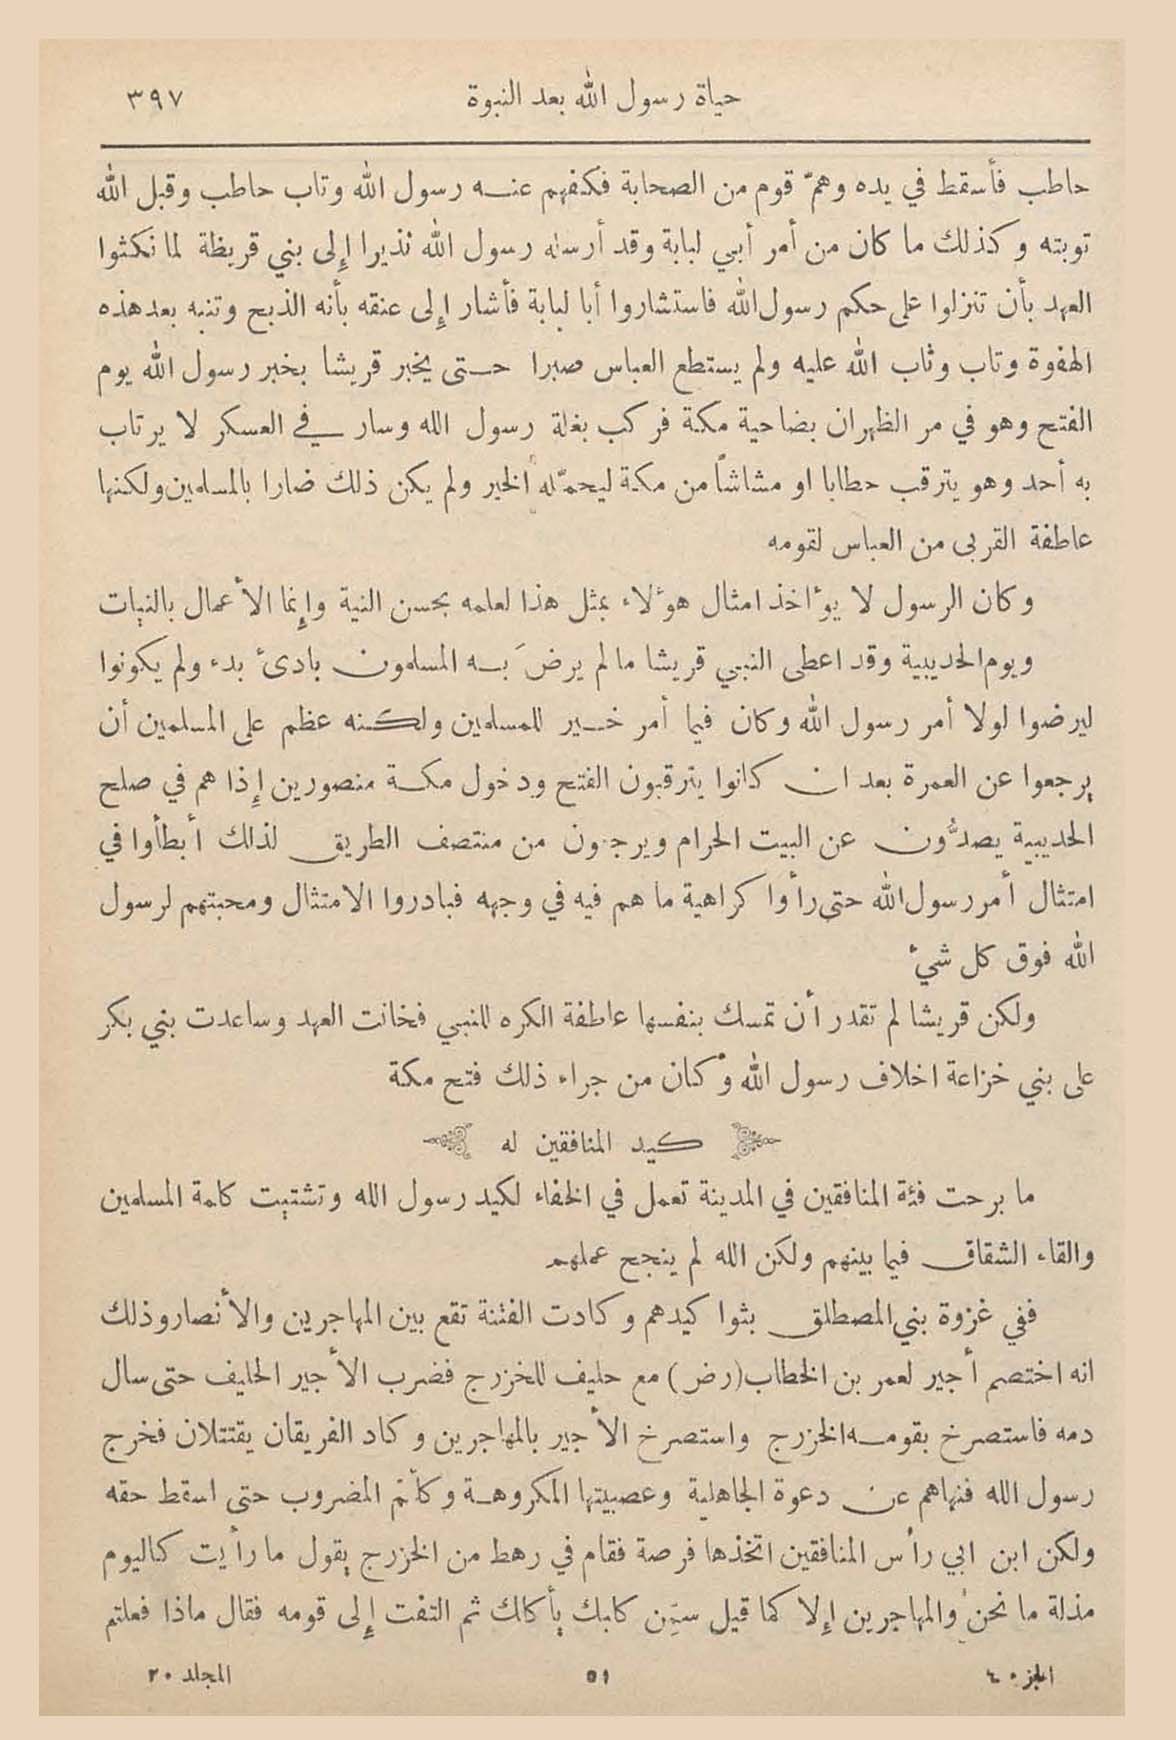 حياة رسول الله بعد النبوة ٣٩٧
حاطب فأسقط في يده وهمّ قوم من الصحابة فكفهم عنه رسول الله وتاب حاطب وقبل الله
توبته وكذلك ما كان من أمر أبي لبابة وقد أرسله رسول الله نذيرا إلى بني قريظة لما نكثوا
العهد بأن تنزلوا على حكم رسول الله فاستشاروا أبا لبابة فأشار إلى عنقه بأنه الذبح وتنبه بعد هذه
الهفوة وتاب وثاب الله عليه ولم يستطع العباس صبرا حتى يخبر قريشا بخبر رسول الله يوم
الفتح وهو في مر الظهران بضاحية مكة فركب بغلة رسول الله وسار في العسكر لا يرتاب
به أحد وهو يترقب حطابا او مشاشاً من مكة ليحمّله الخبر ولم يكن ذلك ضارا بالمسلمين ولكنها
عاطفة القربى من العباس لقومه
وكان الرسول لا يؤاخذ امثال هؤلاء بمثل هذا لعلمه بحسن النية وإنما الأعمال بالنيات
ويوم الحديبية وقد اعطى النبي قريشا ما لم يرضَ به المسلمون بادئ بدء ولم يكونوا
ليرضوا لولا أمر رسول الله وكان فيما أمر خير للمسلمين ولكنه عظم على المسلمين أن
يرجعوا عن العمرة بعد ان كانوا يترقبون الفتح ودخول مكة منصورين إذا هم في صلح
الحديبية يصدُّون عن البيت الحرام ويرجعون من منتصف الطريق لذلك أبطأوا في
امتثال أمر رسول الله حتى رأوا كراهية ما هم فيه في وجهه فبادروا الامتثال ومحبتهم لرسول
الله فوق كل شيء
ولكن قريشا لم تقدر أن تمسك بنفسها عاطفة الكره للنبي فخانت العهد وساعدت بني بكر
على بني خزاعة اخلاف رسول الله وكان من جراء ذلك فتح مكة
كيد المنافقين له
ما برحت فئة المنافقين في المدينة تعمل في الخفاء لكيد رسول الله وتشتيت كلمة المسلمين
والقاء الشقاق فيما بينهم ولكن الله لم ينجح عملهم
ففي غزوة بني المصطلق بثوا كيدهم وكادت الفتنة تقع بين المهاجرين والأنصار وذلك
انه اختصم أجير لعمر بن الخطاب (رض) مع حليف للخزرج فضرب الأجير الحليف حتى سال
دمه فاستصرخ بقومه الخزرج واستصرخ الأجير بالمهاجرين وكاد الفريقان يقتتلان فخرج
رسول الله فنهاهم عن دعوة الجاهلية وعصبيتها المكروهة وكلّم المضروب حتى اسقط حقه
ولكن ابن ابي رأس المنافقين اتخذها فرصة فقام في رهط من الخزرج يقول ما رأيت كاليوم
مذلة ما نحن والمهاجرين إلا كما قيل سمِّن كلبك يأكلك ثم التفت إلى قومه فقال ماذا فعلتم
الجزء ٤ ٥١ المجلد ٢٠